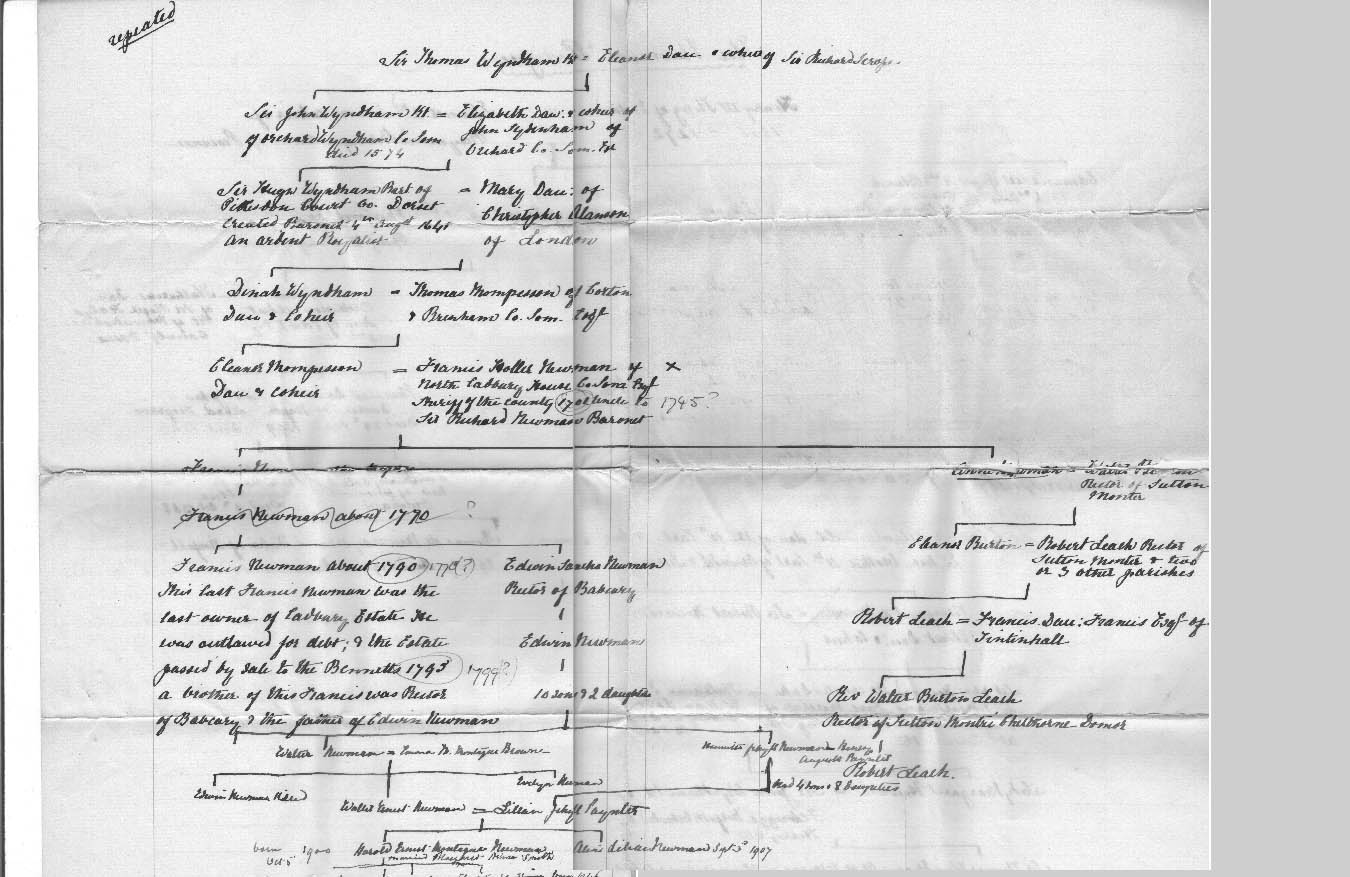 repeated
Sir Thomas Wyndham Kt = Eleanor Dau & coheir of Sir Richard Scrope.
Sir John Wyndham Kt. = Elizabeth Dau: & coheir of
of orchard Wyndham Co Som John Sydenham of
died 1574 Orchard Co. Som. Esq
Sir Hugh Wyndham Bart of = Mary Dau: of
Court Co. Dorset Christopher Alanson
Created Baronet 4th Augst 1641
an ardent Royalist of London
Dinah Wyndham = Thomas Mompesson of Corton
Dau & Coheir & Brenham Co. Som. Esqr
Eleanor Mompesson = Francis Holles Newman of x
Dau & coheir North Cadbury House Co Som Esqr
Sheriff of the county 170 Uncle to 1745?
Sir Richard Newman Baronet
Francis
Anne Newman =
Rector of Sutton
Montis
Francis Newman about 1770 ?
Eleanor Burton = Robert Leach Rector of
Sutton Montis & two
or 3 other parishes
Francis Newman about 1790 1770(?) Edwin Sancho Newman
This last Francis Newman was the Rector of Babcary
last owner of Cadbury Estate He
was outlawed for debt; & the Estate Edwin Newman
passed by sale to the Bennetts 1793 1799(?)
a brother of this Francis was Rector 10 sons & 2 daughters
of Babcary & the father of Edwin Newman
Robert Leach = Francis. Dau: Francis Esqr of
Tintinhall
Rev Walter Burton Leach
Rector of Sutton Montis Chilthorne Domer
Robert Leach.
Walter Newman = Emma M. Montague Browne
Jekyll Newman = Henry
Augusts Paynter
had 4 sons & 8 daughters
Edwin Newman Evelyn Newman
Walter Ernest Newman = Lilian Jekyll Paynter
born 1900 Harold Ernest Montague Newman Lilian Newman Sept 3 1907
Oct 5 married Margaret Smith